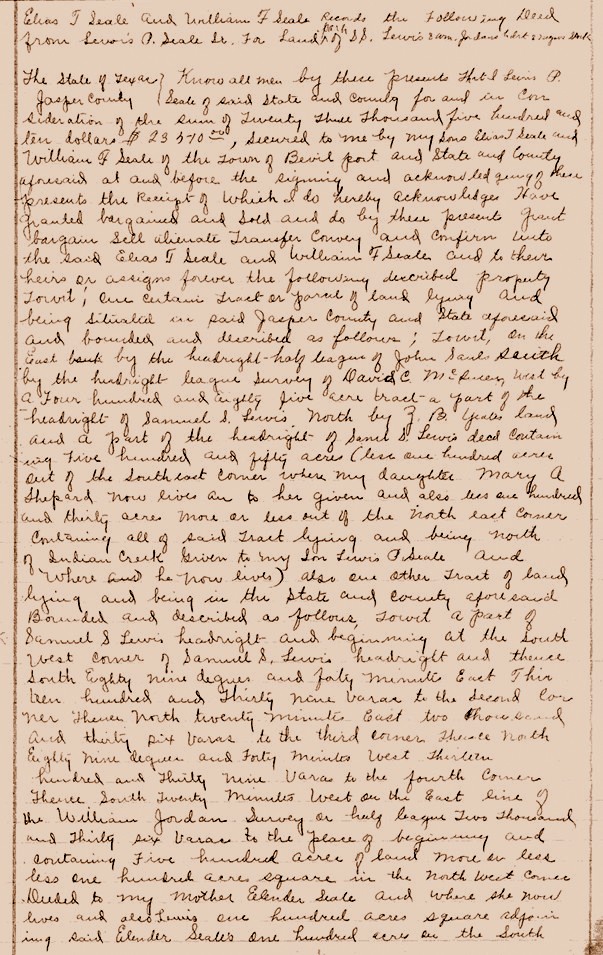 Elias T Seale and William F Seale Records the Following Deed
from Lewis P. Seale Sr. For Land, part of S.S. Lewis & Wm. Jordans
The State of Texas } Know all men by these presents that I Lewis P.
Jasper County { Seale of said State and County for and in Con
sideration of the sum of Twenty Three Thousand five hundred and
ten dollars $ 23 510 00, secured to me by my sons Elias T Seale and
William F Seale of the Town of Bevil port and State and County
aforesaid at and before the signing and acknowledgeing of these
presents the Receipt of Which I do hereby acknowledges Have
granted bargained and Sold and do by these presents grant
bargain Sell alienate Transfer Convey and Confirm unto
the said Elias T Seale and William F Seale and to their
heirs or assigns forever the following described property
Towit; One certain Tract or parcel of land lying and
being Situated in said Jasper County and State aforesaid
and bounded and described as follows; Towit; On the
East bank by the headright half league of John Sauls South
by the hedright league Survey of David C. McSween West by
a Four hundred and eighty five acre tract a part of the
headright of Samuel S. Lewis North by Z. B. Yeates land
and a part of the headright of Saml S. Lewis decd Contain
ing Five hundred and fifty acres (less one hundred acres
out of the South east corner where my daughter Mary A
Shepard now lives an to her given and also less one hundred
and thirty acres more or less out of the North east corner
Containing all of said Tract lying and being North
of Indian Creek Given to my Son Lewis P. Seale and
Where and he now lives) also one other Tract of land
lying and being in the State and County aforesaid
Bounded and described as follows, Towit a part of
Samuel S Lewis headright and beginning at the South
West corner of Samuel S. Lewis headright and thence
South Eighty nine degrees and forty minutes East Thir
teen hundred and Thirty Nine Varas to the second Cor
ner Thence North twenty minutes East two thousand
and thirty six Varas to the third corner Thence North
Eighty Nine degrees and Forty Minutes West Thirteen
hundred and Thirty Nine Varas to the fourth Corner
Thence South Twenty Minutes West on the East line of
the William Jordan Survey or half league Two Thousand
and Thirty six Varas to the place of beginning and
containing Five hundred acres of land more or less
less one hundred acres square in the North West Corner
Deeded to my Mother Elender Seale and where she now
lives and also Lewis one hundred acres square adjoin
ing said Elender Seale's one hundred acres on the South